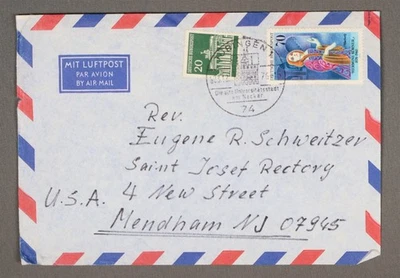 MIT LUFTPOST
PAR AVION
BY AIR MAIL
20
70
74
Rev.
Eugene R. Schweitzer
Saint Josef Rectory
U.S.A. 4 New Street
Mendham NJ 07945